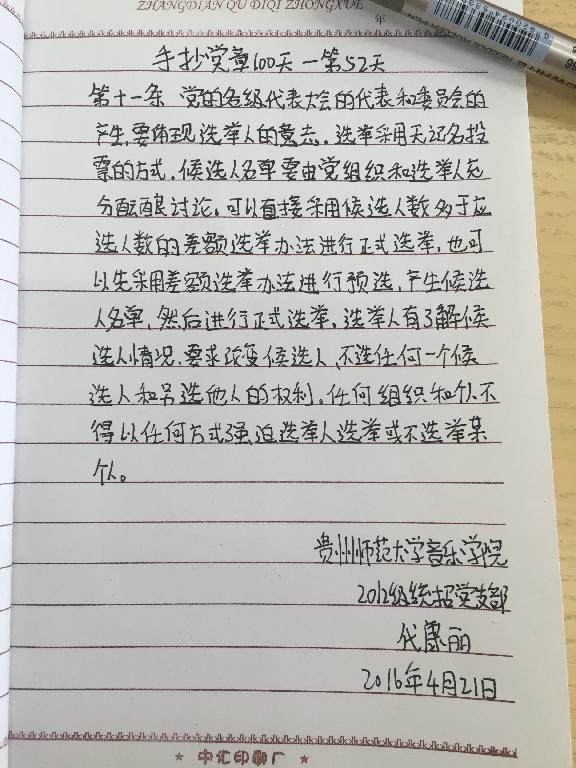 ZHANGDIAN QU DIQI ZHONGXUE
年
手抄党章100天—第52天
第十一条 党的各级代表大会的代表和委员会的
产生,要体现选举人的意志。选举采用无记名投
票的方式。候选人名单要由党组织和选举人充
分酝酿讨论。可以直接采用候选人数多于应
选人数的差额选举办法进行正式选举,也可
以先采用差额选举办法进行预选,产生候选
人名单,然后进行正式选举。选举人有了解候
选人情况、要求改变候选人、不选任何一个候
选人和另选他人的权利。任何组织和个人不
得以任何方式强迫选举人选举或不选举某
个人。
贵州师范大学音乐学院
2012级统招党支部
代康丽
2016年4月21日
中汇印刷厂